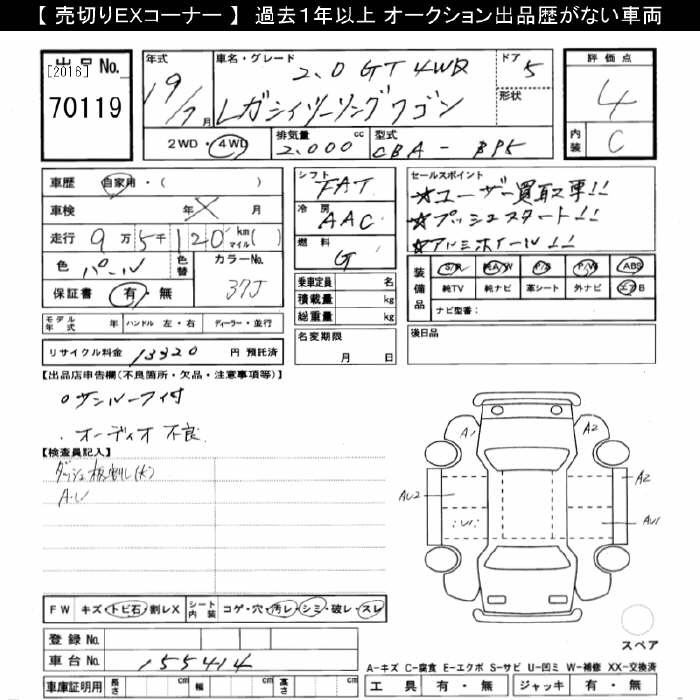 【 売切りEXコーナー 】 過去１年以上 オークション出品歴がない車両
出品No.
[2016]
70119
年式
19/7月
車名・グレード
2.0 GT 4WD
レガシィツーリングワゴン
ドア
5
形状
2WD・4WD
排気量 cc
2.000
型式
CBA - BP5
評価点
4
内装
C
車歴 自家用・( )
車検 年 月
走行 9万5千120 km マイル( )
色 パール
色替
カラーNo.
37J
保証書 有・無
シフト
FAT
冷房
AAC
燃料
G
乗車定員 名
積載量 kg
総重量 kg
セールスポイント
☆ユーザー買取車!!
☆プッシュスタート!!
☆アルミホイール!!
装備品
S/R A/W P/S P/W ABS
純TV 純ナビ 革シート 外ナビ エアB
ナビ型番:
モデル年式 年 ハンドル 左・右 ディーラー・並行
名変期限
月 日
後日品
リサイクル料金 13320 円 預託済
【出品店申告欄(不良箇所・欠品・注意事項等)】
○サンルーフ付
・オーディオ不良
【検査員記入】
A・U
A1
A2
AU2
A2
U1
AU1
FW キズ・トビ石・割レX
シート内装 コゲ・穴・汚レ・シミ・破レ・スレ
スペア
登録No.
車台No. 155414
A-キズ C-腐食 E-エクボ S-サビ U-凹ミ W-補修 XX-交換済
車庫証明用 長さ cm 幅 cm 高さ cm
工具 有・無 ジャッキ 有・無